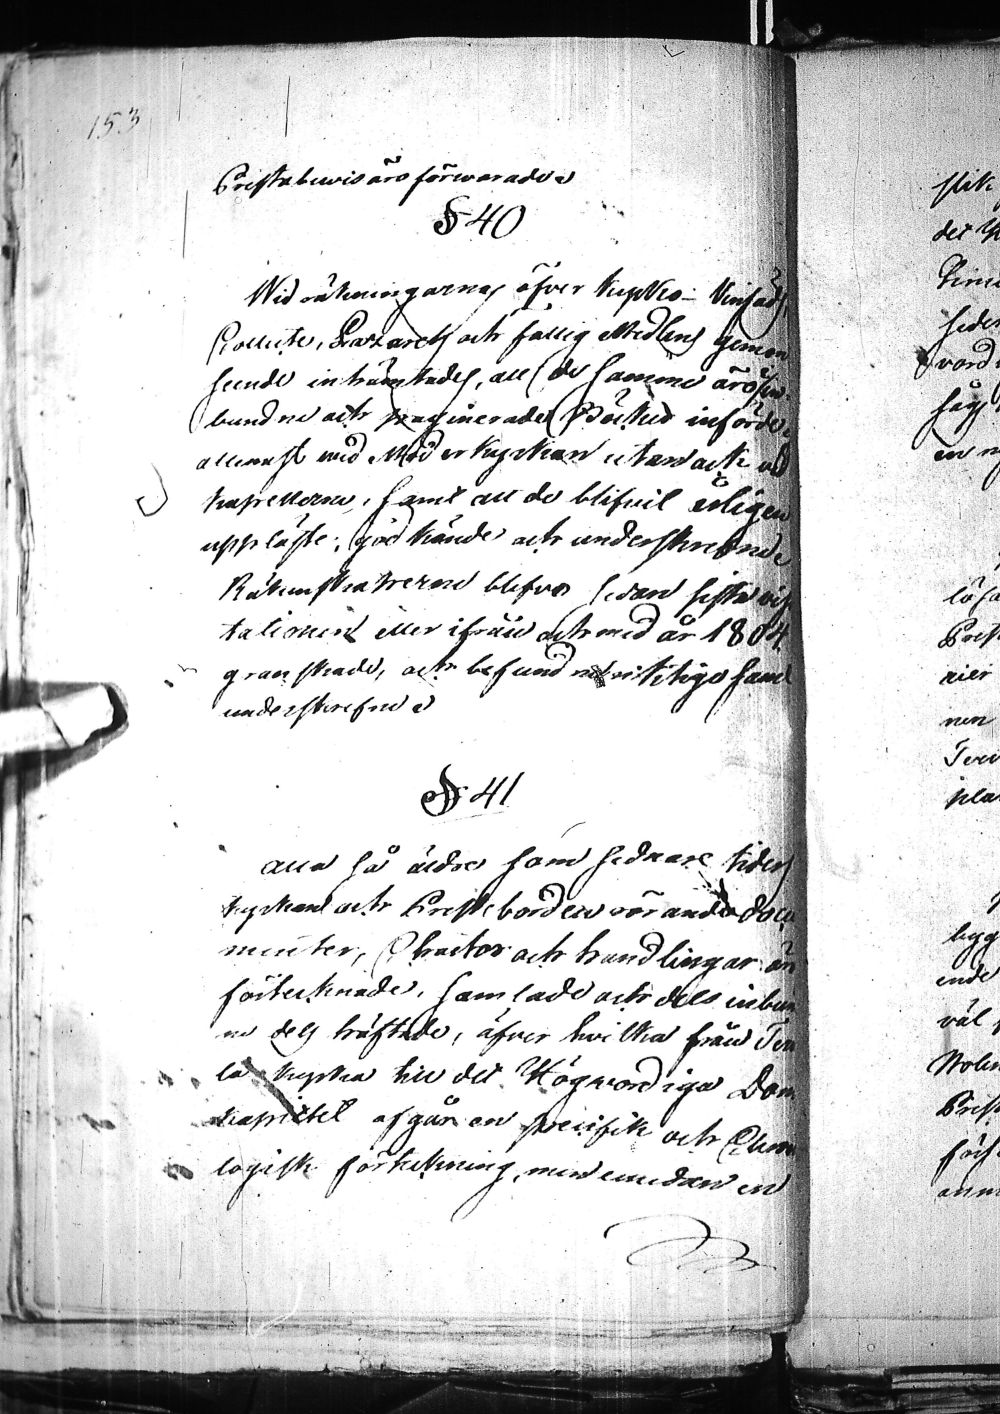 153
Prestabevis äro förvarade
§ 40
Wid räkningarnas öfver kyrko- Vinsäds,
Collecte, Lazarets och fattig Medlens genom
seende inhämtades, att de samme äro in-
bundne och paginerade Böcker införde
allenast wid Moderkyrkan utan ock vid
kapellerne, samt att de blifvit årligen
uppläste, godkände och underskrefne
Räkenskaperne blefvo sedan sista visi
tationen eller ifrån och med år 1804
granskade, och befundne riktige samt
underskrefne
§ 41
Alla så äldre som sednare tiders
kyrkan och Prestebordet rörande docu
menter, Chartor och handlingar är
förtecknade, samlade och dels inbun
ne dels häftade, öfver hvilka från
la kyrka till det Högvördiga Dom
kapitel afgår en specifik och Chrono
logisk förteckning, men emedan en
slik
det
sedes
en
lösa
Prest
nen
pla
byg
ende
väl
Prest